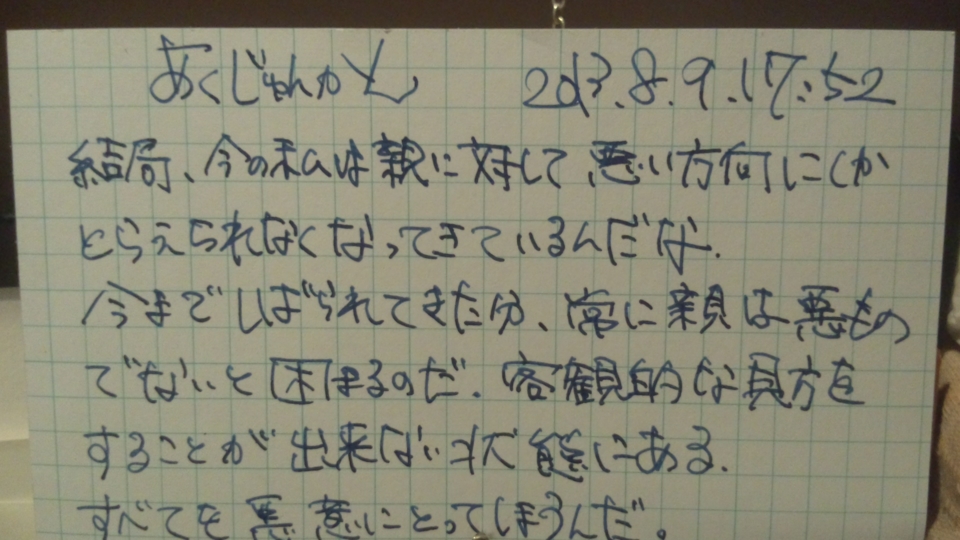 あくじゅんかん 2013.8.9.17:52
結局、今の私は親に対して悪い方向にしか
とらえられなくなってきているんだな.
今までしばられてきた分、常に親は悪もの
でないと困まるのだ.客観的な見方を
することが出来ない状態にある.
すべてを悪意にとってしまうんだ。